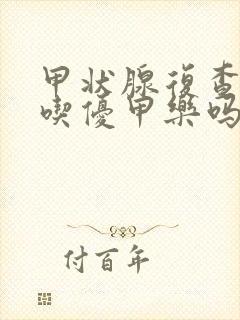 甲状腺復查
喫優甲樂吗
付百年